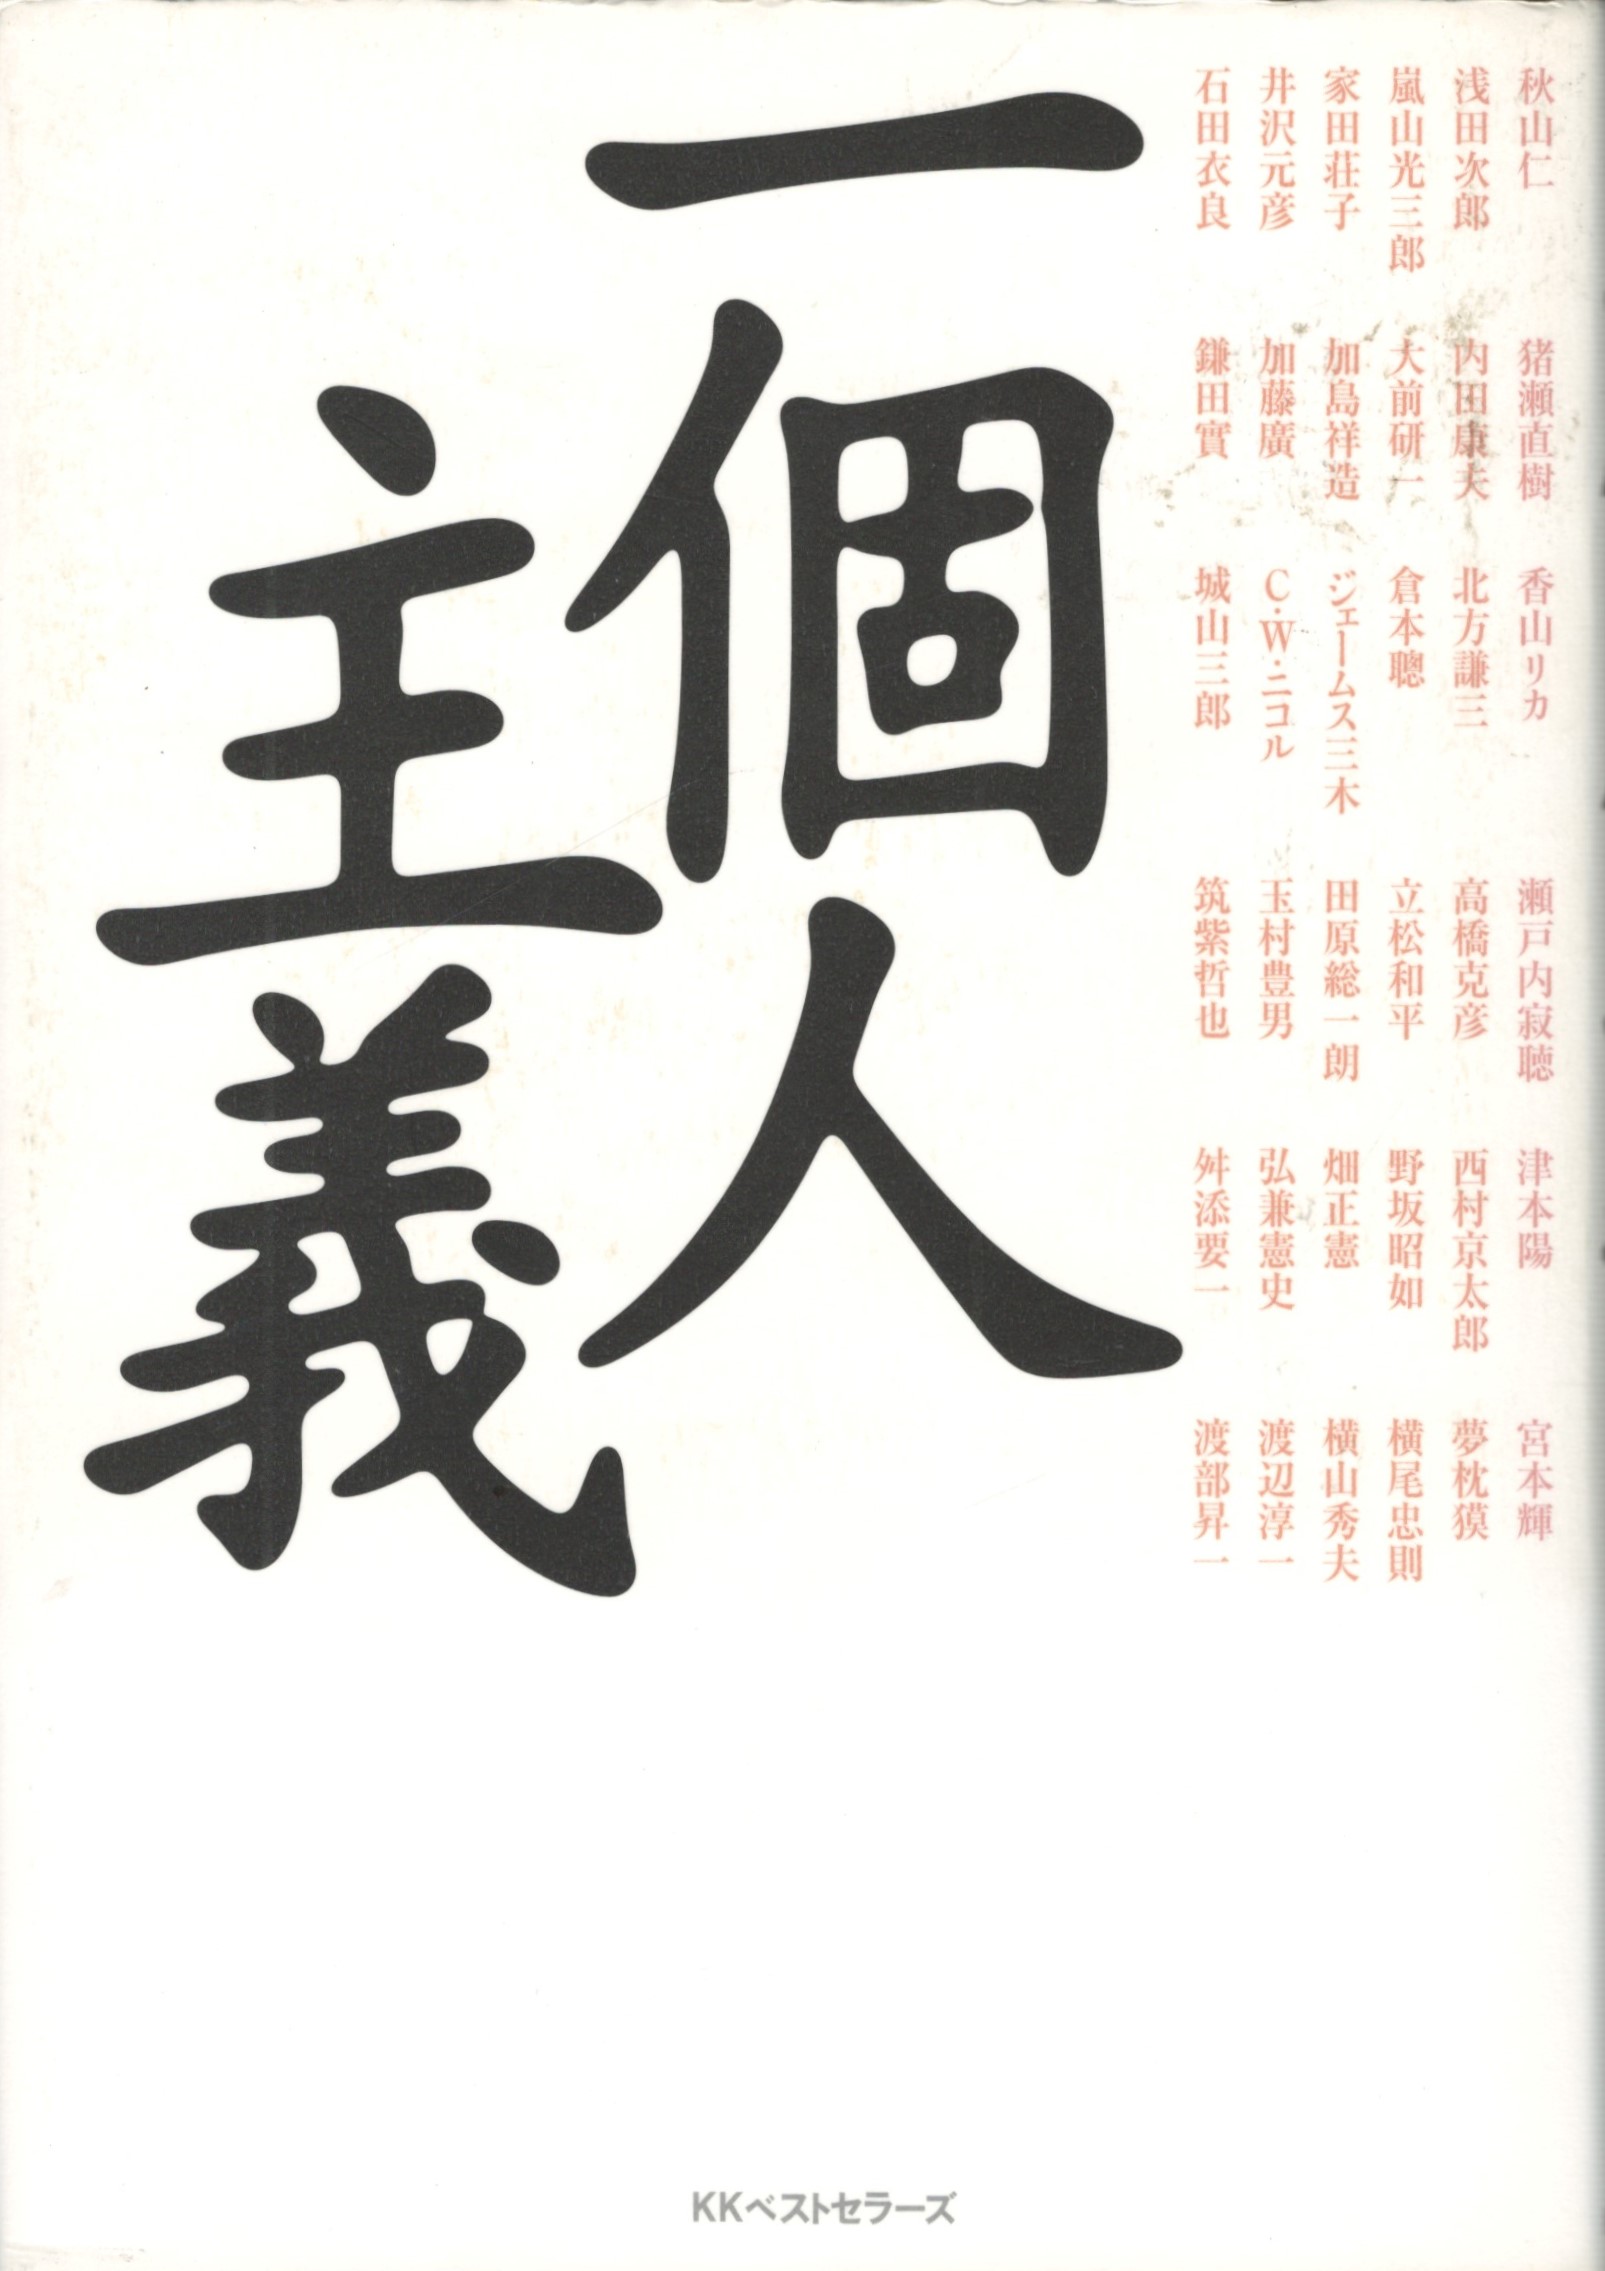 秋山仁　猪瀬直樹　香山リカ　瀬戸内寂聴　津本陽　宮本輝
浅田次郎　内田康夫　北方謙三　高橋克彦　西村京太郎　夢枕獏
嵐山光三郎　大前研一　倉本聰　立松和平　野坂昭如　横尾忠則
家田荘子　加島祥造　ジェームス三木　田原総一朗　畑正憲　横山秀夫
井沢元彦　加藤廣　C・W・ニコル　玉村豊男　弘兼憲史　渡辺淳一
石田衣良　鎌田實　城山三郎　筑紫哲也　舛添要一　渡部昇一
一個人
主義
KKベストセラーズ